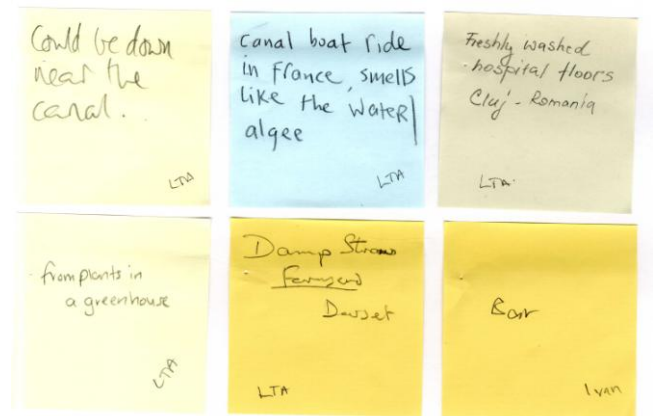 Could be down
near the
canal.
LTA
canal boat ride
in france, smells
like the water
algee
LTA
Freshly washed
hospital floors
Cluj - Romania
LTA.
from plants in
a greenhouse
LTA
Damp Straw
Farmyard
Dorset
LTA
Ivan